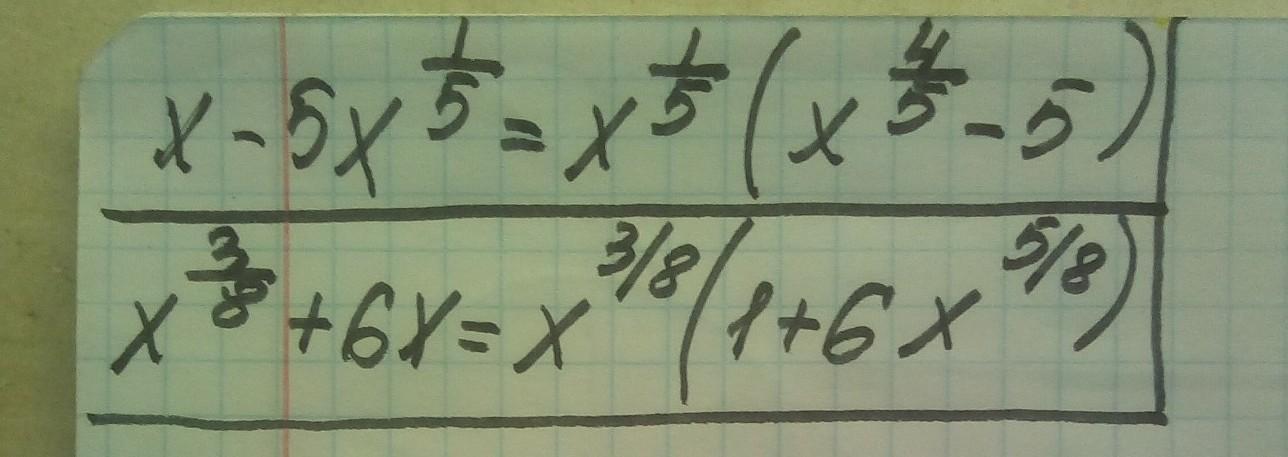 x - 5x^{\frac{1}{5}} = x^{\frac{1}{5}} (x^{\frac{4}{5}} - 5)
x^{\frac{3}{8}} + 6x = x^{3/8} (1 + 6x^{5/8})